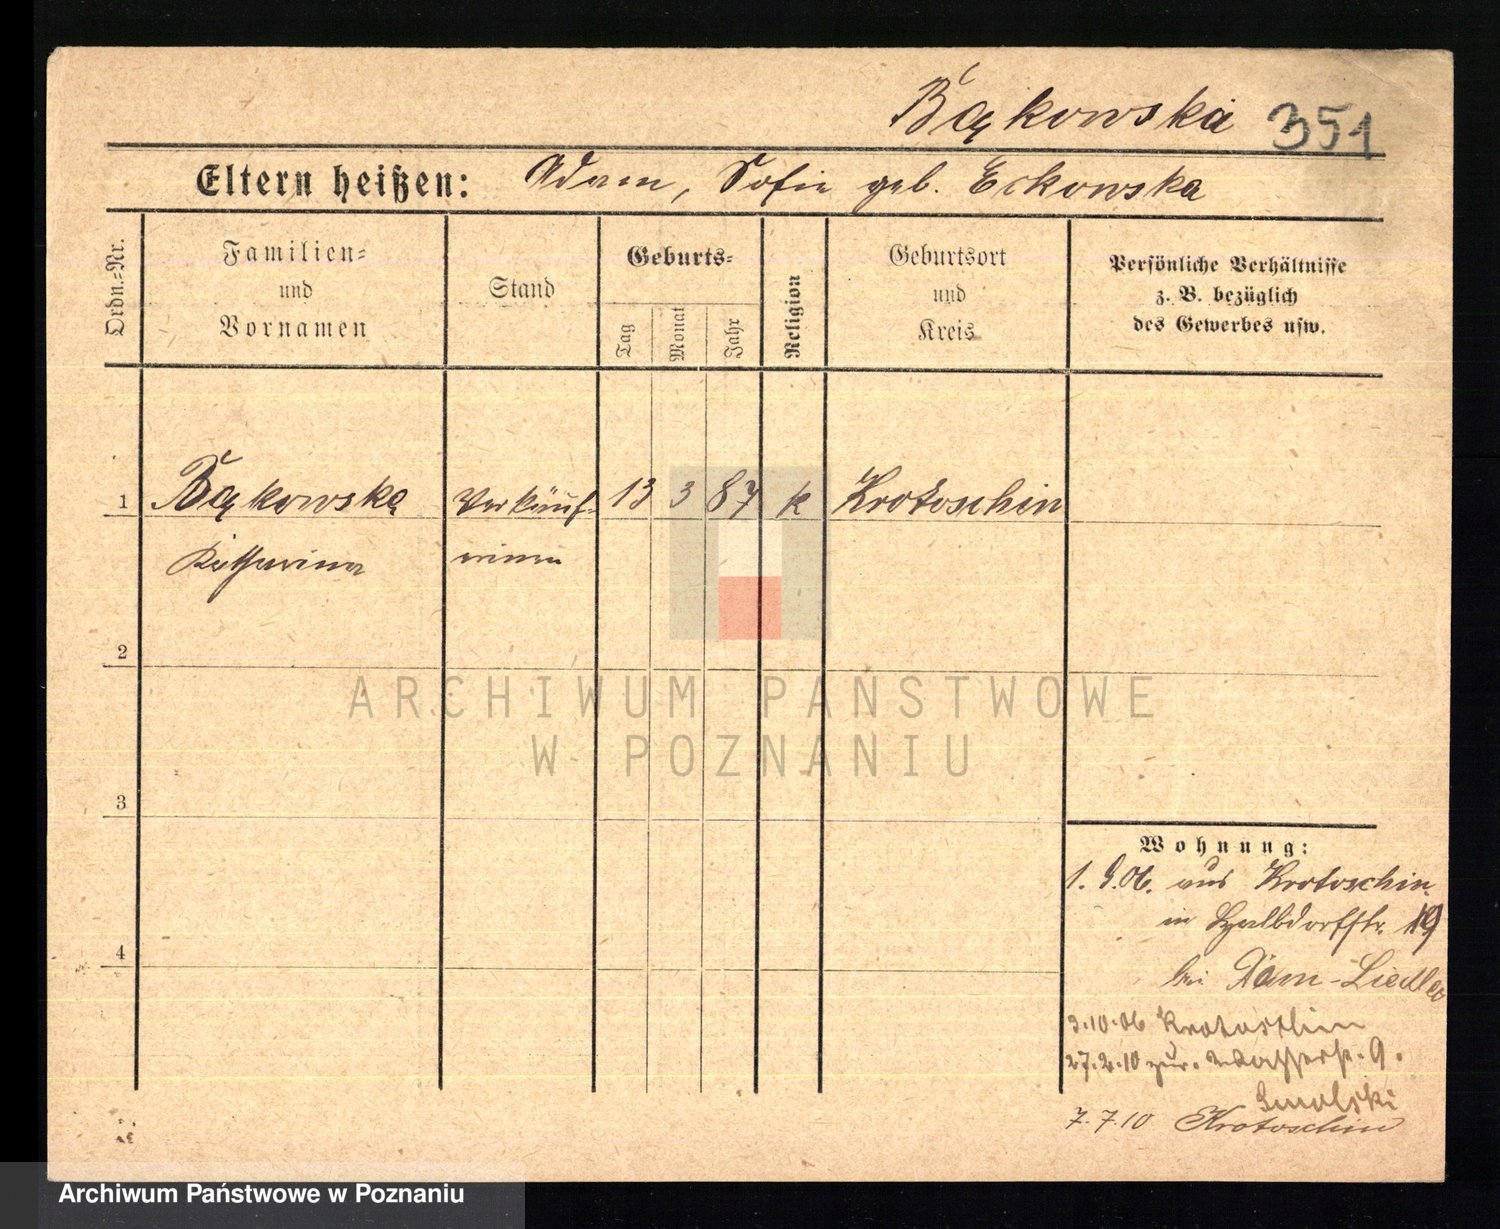 Bąkowska 351
Eltern heißen: Adam, Sofie geb. Eckowska
Ordn.-Nr.
Familien-
und
Vornamen
Stand
Geburts-
Tag
Monat
Jahr
Religion
Geburtsort
und
Kreis
Persönliche Verhältnisse
z. B. bezüglich
des Gewerbes usw.
1 Bąkowska Verkäuf- 13 3 87 k Krotoschin
Katharina erinn
2
ARCHIWUM PAŃSTWOWE
W POZNANIU
3
4
Wohnung:
1. 9. 06. aus Krotoschin
in Halbdorfstr. 19
bei
3.10.06 Krotoschin
27.2.10 zur. Wasserstr. 9.
Smolski
7.7.10 Krotoschin
Archiwum Państwowe w Poznaniu